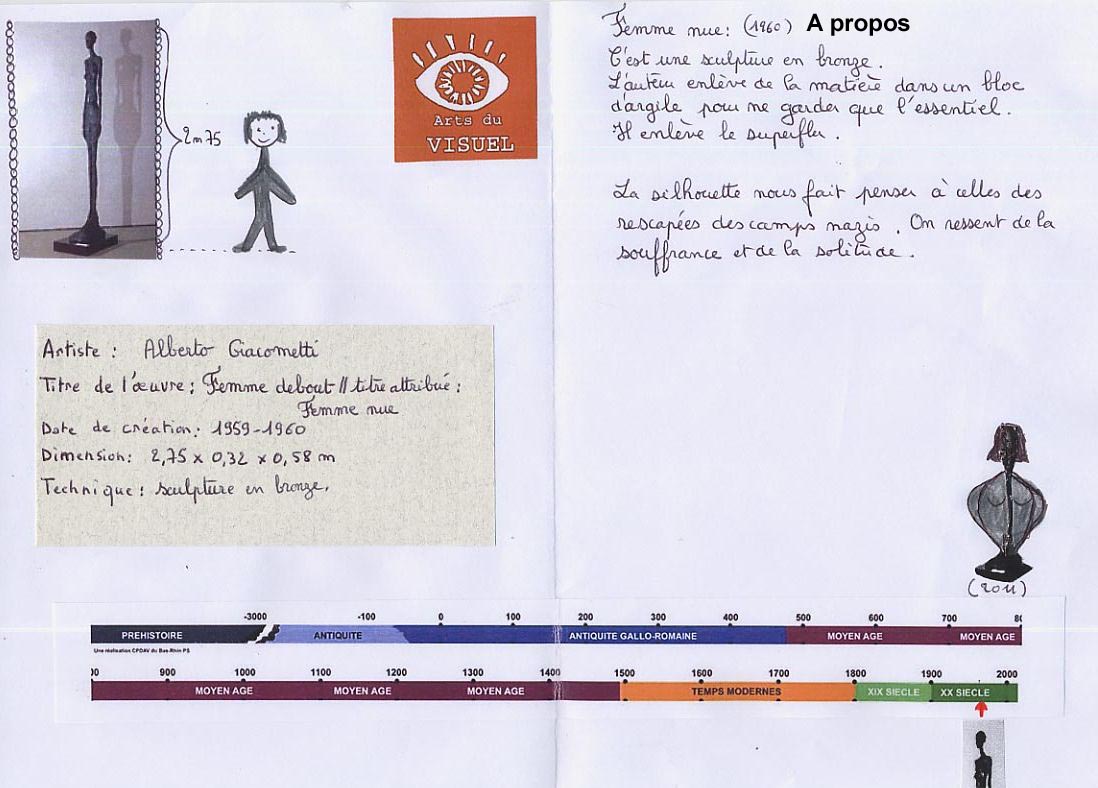 2m75
Arts du
VISUEL
Femme nue: (1960) A propos
C'est une sculpture en bronze.
L'auteur enlève de la matière dans un bloc
d'argile pour ne garder que l'essentiel.
Il enlève le superflu.
La silhouette nous fait penser à celles des
rescapées des camps nazis. On ressent de la
souffrance et de la solitude.
Artiste : Alberto Giacometti
Titre de l'œuvre : Femme debout // titre attribué :
Femme nue
Date de création : 1959-1960
Dimension: 2,75 x 0,32 x 0,58 m
Technique : sculpture en bronze.
(2011)
-3000 -100 0 100 200 300 400 500 600 700 80
PREHISTOIRE ANTIQUITE ANTIQUITE GALLO-ROMAINE MOYEN AGE MOYEN AGE
Une réalisation CPDAV du Bas-Rhin PS
00 900 1000 1100 1200 1300 1400 1500 1600 1700 1800 1900 2000
MOYEN AGE MOYEN AGE MOYEN AGE TEMPS MODERNES XIX SIECLE XX SIECLE